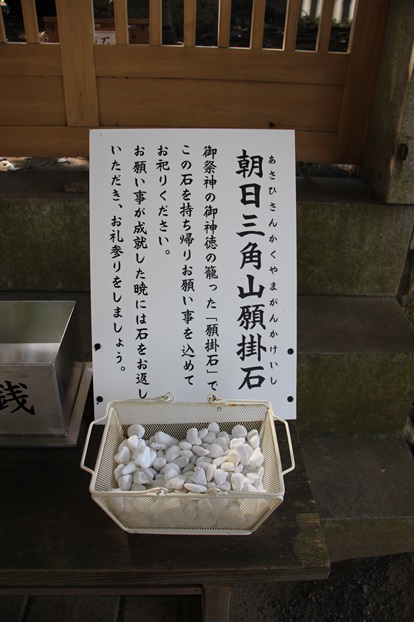 朝日三角山願掛石
あさひさんかくやまがんかけいし
御祭神の御神徳の籠った「願掛石」です。
この石を持ち帰りお願い事を込めて
お祀りください。
お願い事が成就した暁には石をお返し
いただき、お礼参りをしましょう。
銭